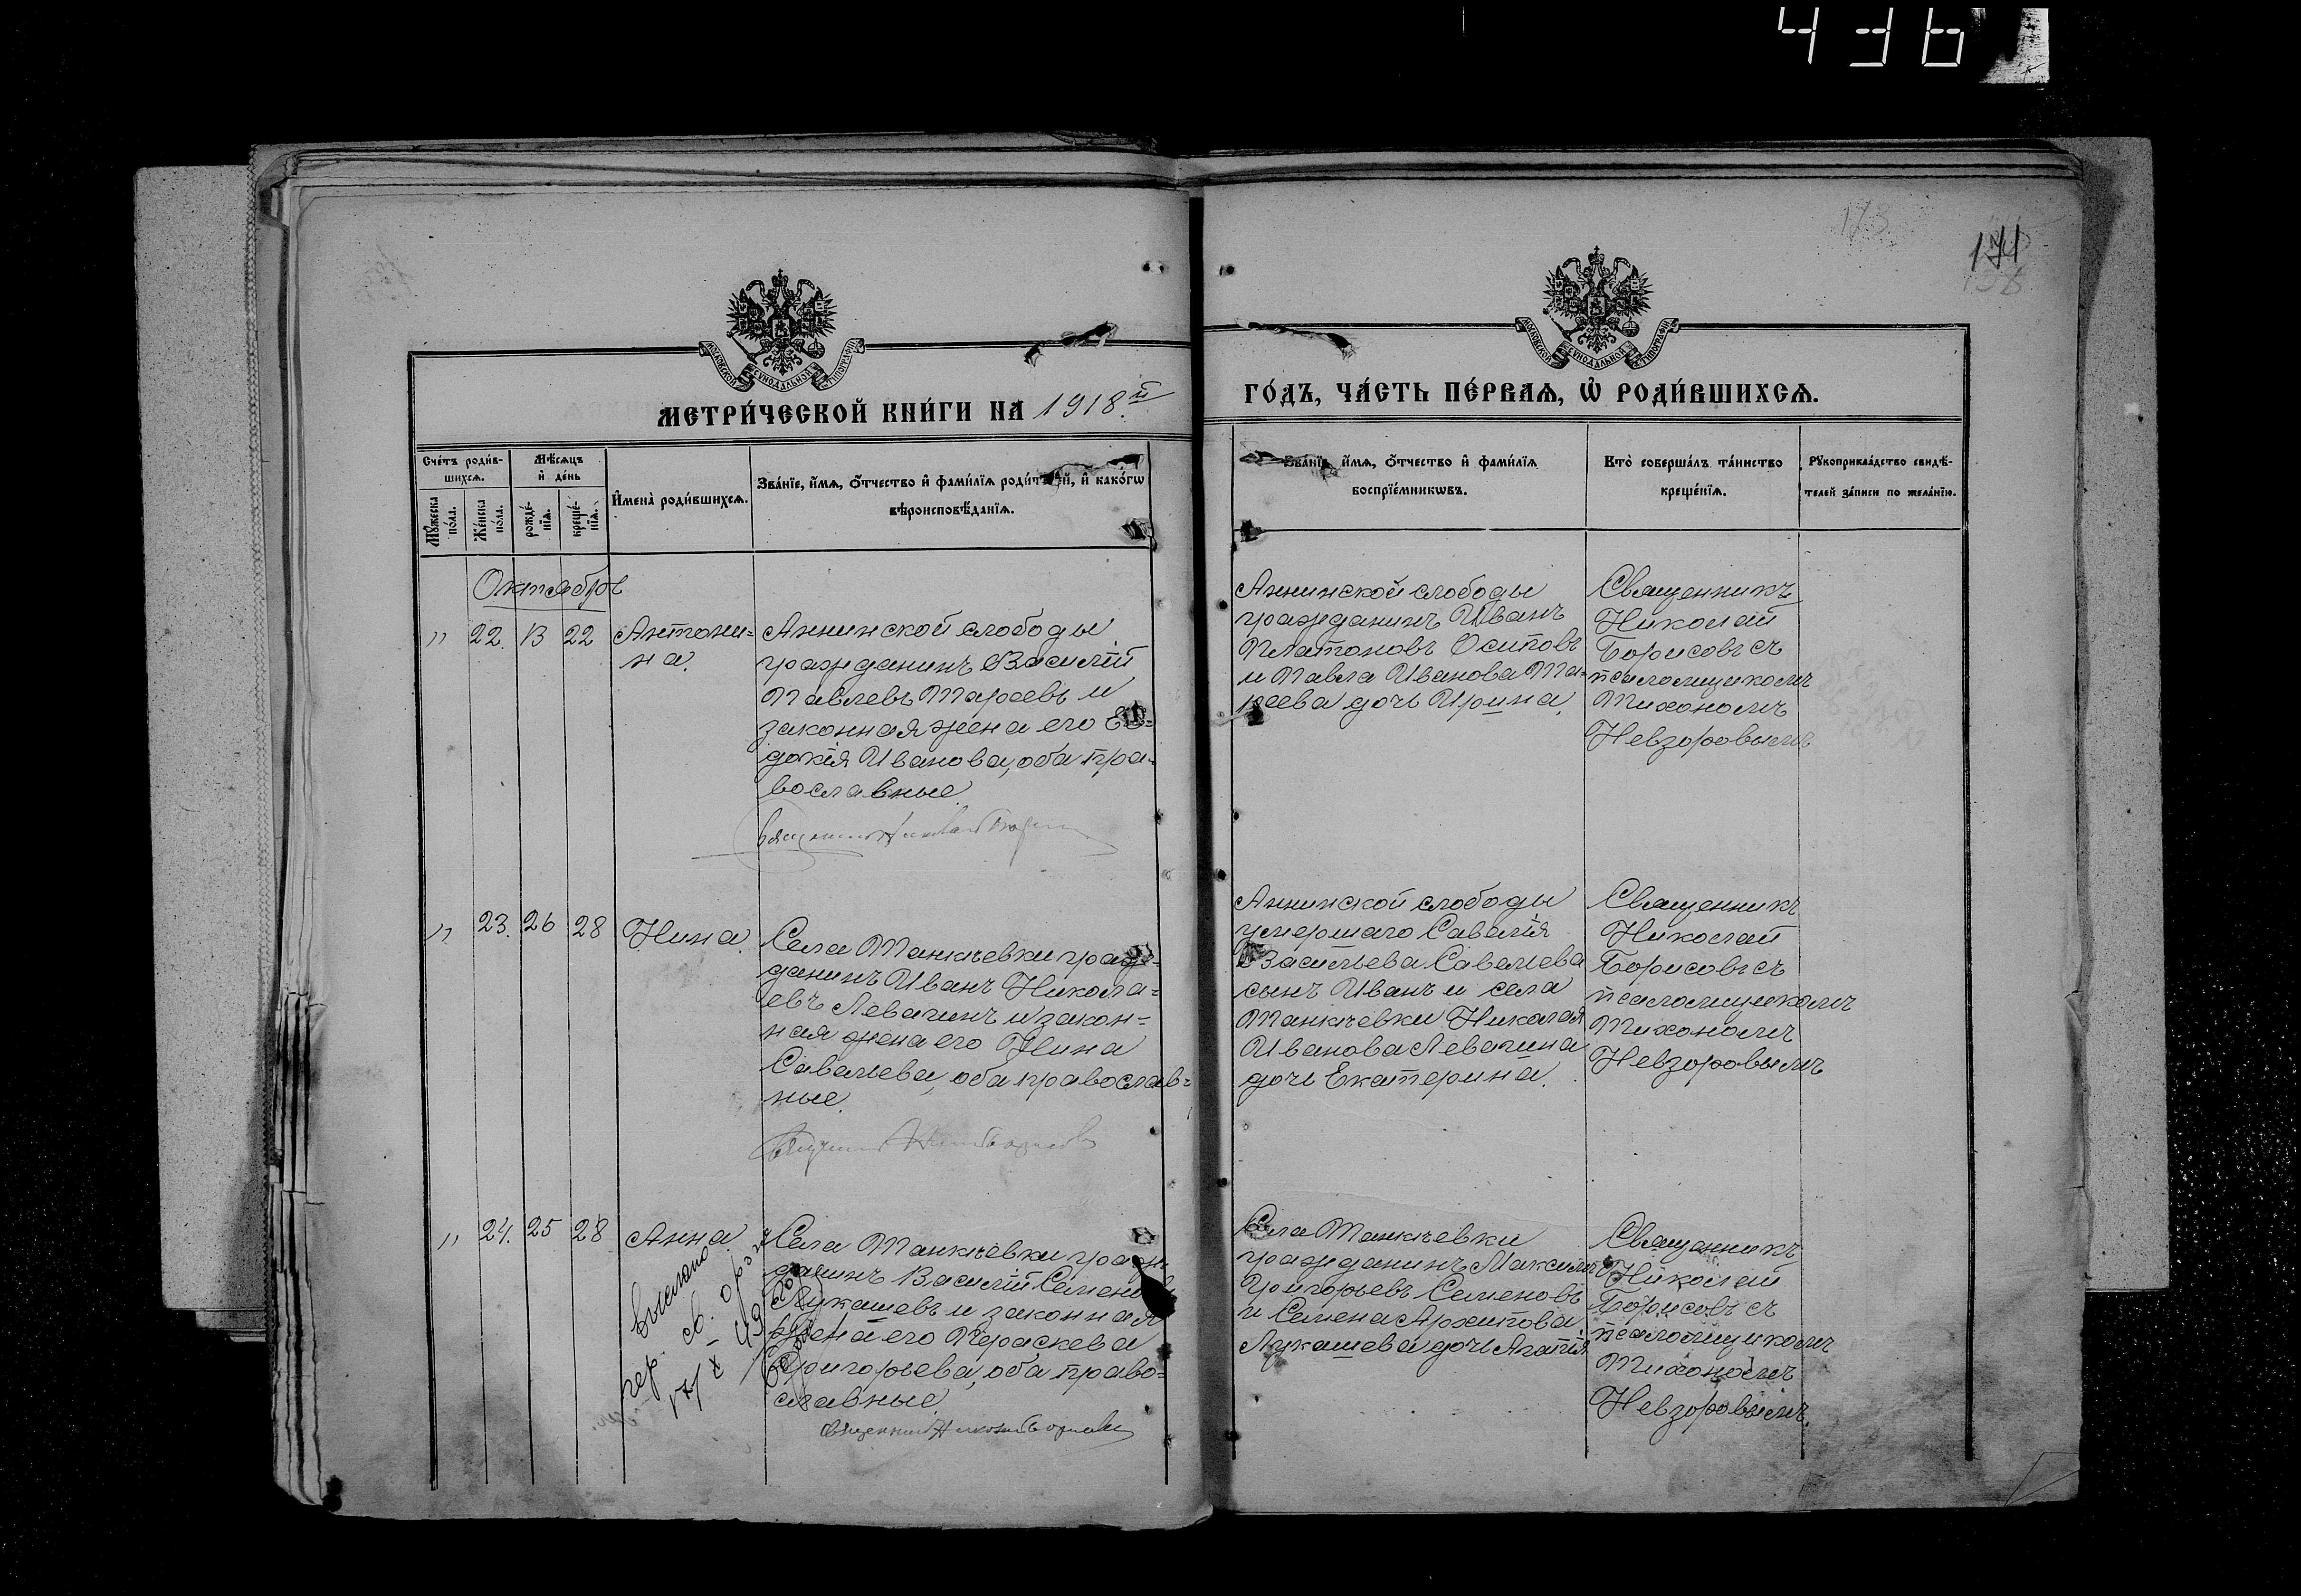 436
173
171
МОСКОВСКОЙ СУНОДАЛЬНОЙ ТИПОГРАФІИ
МОСКОВСКОЙ СУНОДАЛЬНОЙ ТИПОГРАФІИ
МЕТРИ́ЧЕСКОЙ КНИ́ГИ НА 1918.й
ГО́ДЪ, ЧА́СТЬ ПЕ́РВАѦ, Ѽ РОДИ́ВШИХСѦ.
Сче́тъ роди́в-
шихсѧ.
Мꙋ́жеска по́ла.
Же́нска по́ла.
Мѣ́сѧцъ
и҆ де́нь
рожде́-
нїѧ.
креще́-
нїѧ.
И҆мена̀ роди́вшихсѧ.
Зва́нїе, и҆́мѧ, ѻ҆́тчество и҆ фами́лїѧ роди́телей, и҆ како́гѡ
вѣроисповѣ́данїѧ.
Зва́нїе, и҆́мѧ, ѻ҆́тчество и҆ фами́лїѧ
воспрїе́мникѡвъ.
Кто̀ соверша́лъ та́инство
креще́нїѧ.
Рꙋкоприкла́дство свидѣ́-
телей за́писи по жела́нїю.
Октябрь
" 22. 13 22
Антони=
на.
Аннинской слободы
гражданинъ Василій
Павлевъ Тареевъ и
законная жена его Ев=
докія Иванова, оба пра-
вославные.
Священникъ Николай Борисовъ
Аннинской слободы
гражданинъ Иванъ
Платоновъ Осиповъ
и Павла Иванова Та-
реева дочь Ирина.
Священникъ
Николай
Борисовъ съ
псаломщикомъ
Тихономъ
Невзоровымъ
" 23. 26 28
Нина.
Села Танкѣевки граж-
данинъ Иванъ Никола=
евъ Левагинъ и закон=
ная жена его Нина
Савельева, оба православ-
ные.
Священникъ Николай Борисовъ
Аннинской слободы
умершаго Савелія
Васильева Савельева
сынъ Иванъ и села
Танкѣевки Николая
Иванова Левагина
дочь Екатерина.
Священникъ
Николай
Борисовъ съ
псаломщикомъ
Тихономъ
Невзоровымъ
" 24. 25 28
Анна.
выслано
Села Танкѣевки граж-
данинъ Василій Семеновъ
Лукашевъ и законная
жена его Параскева
Григорьева, оба право=
славные.
Священникъ Николай Борисовъ
Села Танкѣевки
гражданинъ Максимъ
Григорьевъ Семеновъ
и Семена Архипова
Лукашева дочь Агапія
Священникъ
Николай
Борисовъ съ
псаломщикомъ
Тихономъ
Невзоровымъ.